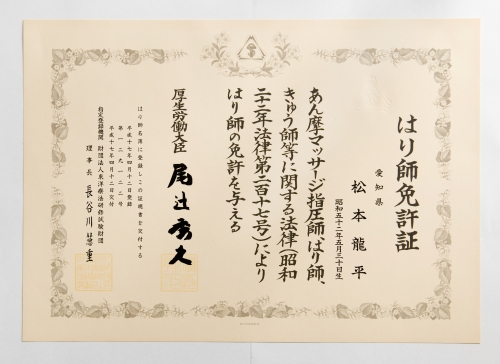 はり師免許証
愛知県
松本龍平
昭和五十二年五月三十日生
あん摩マッサージ指圧師、はり師、
きゅう師等に関する法律(昭和
二十二年法律第二百十七号)により
はり師の免許を与える
厚生労働大臣 尾辻秀久
はり師名簿に登録しこの証明書を交付する
平成十七年四月十二日登録
平成十七年四月十二日交付
指定登録機関 財団法人東洋療法研修試験財団
理事長 長谷川 慧重